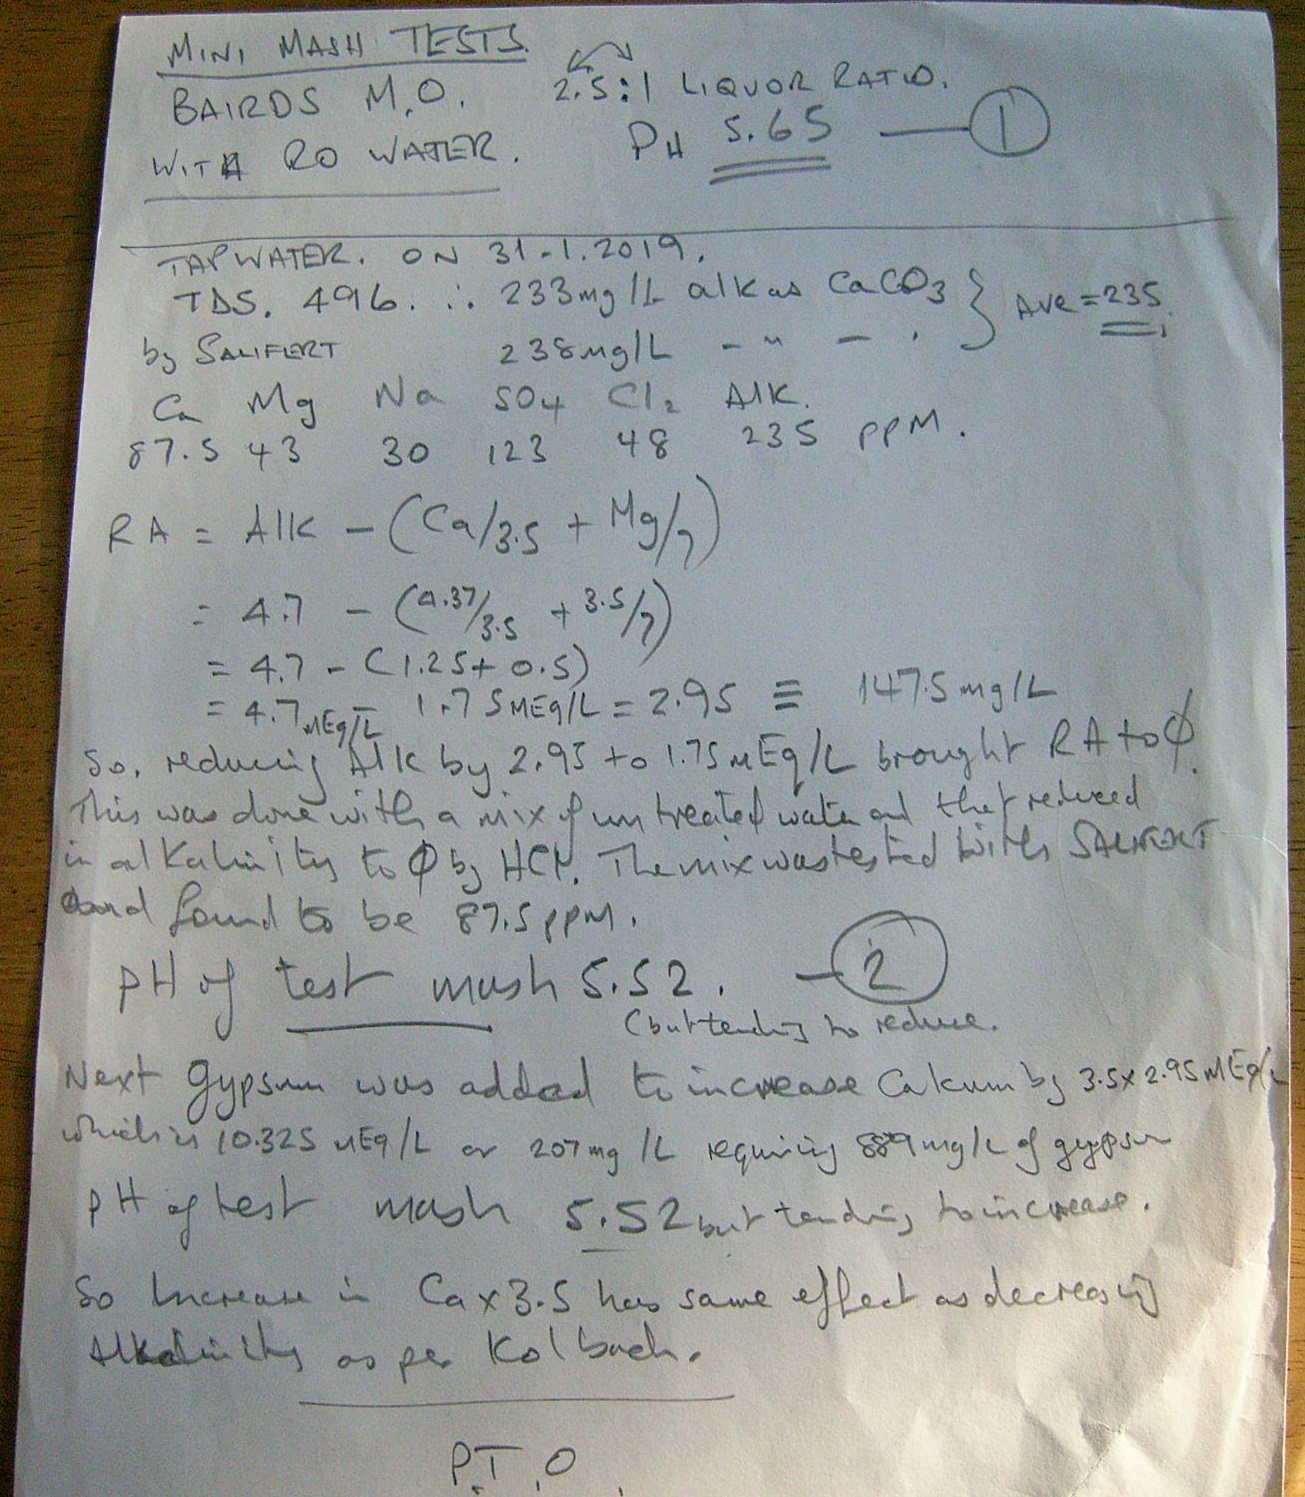 MINI MASH TESTS.
BAIRDS M.O. 2.5:1 LIQUOR RATIO.
WITH RO WATER. PH 5.65 — 1
TAPWATER. ON 31-1.2019.
TDS. 496. ∴ 233mg/L alk as CaCO3 } Ave = 235.
by SALIFERT 238mg/L - " - .
Ca Mg Na SO4 Cl2 Alk.
87.5 43 30 123 48 235 PPM.
RA = Alk - (Ca/3.5 + Mg/7)
= 4.7 - (4.37/3.5 + 3.5/7)
= 4.7 - (1.25 + 0.5)
= 4.7 MEq/L 1.75 MEq/L = 2.95 ≡ 147.5 mg/L
So, reducing Alk by 2.95 to 1.75 MEq/L brought RA to Ø.
This was done with a mix of untreated water and that reduced
in alkalinity to Ø by HCl. The mix was tested with SALIFERT
and found to be 87.5 ppm.
pH of test mash 5.52. — 2
(but tending to reduce.
Next gypsum was added to increase Calcium by 3.5 x 2.95 MEq/L
which is 10.325 MEq/L or 207mg/L requiring 889mg/L of gypsum
pH of test mash 5.52 but tending to increase.
So Increase in Ca x 3.5 has same effect as decreasing
Alkalinity as per Kolbach.
P.T.O.